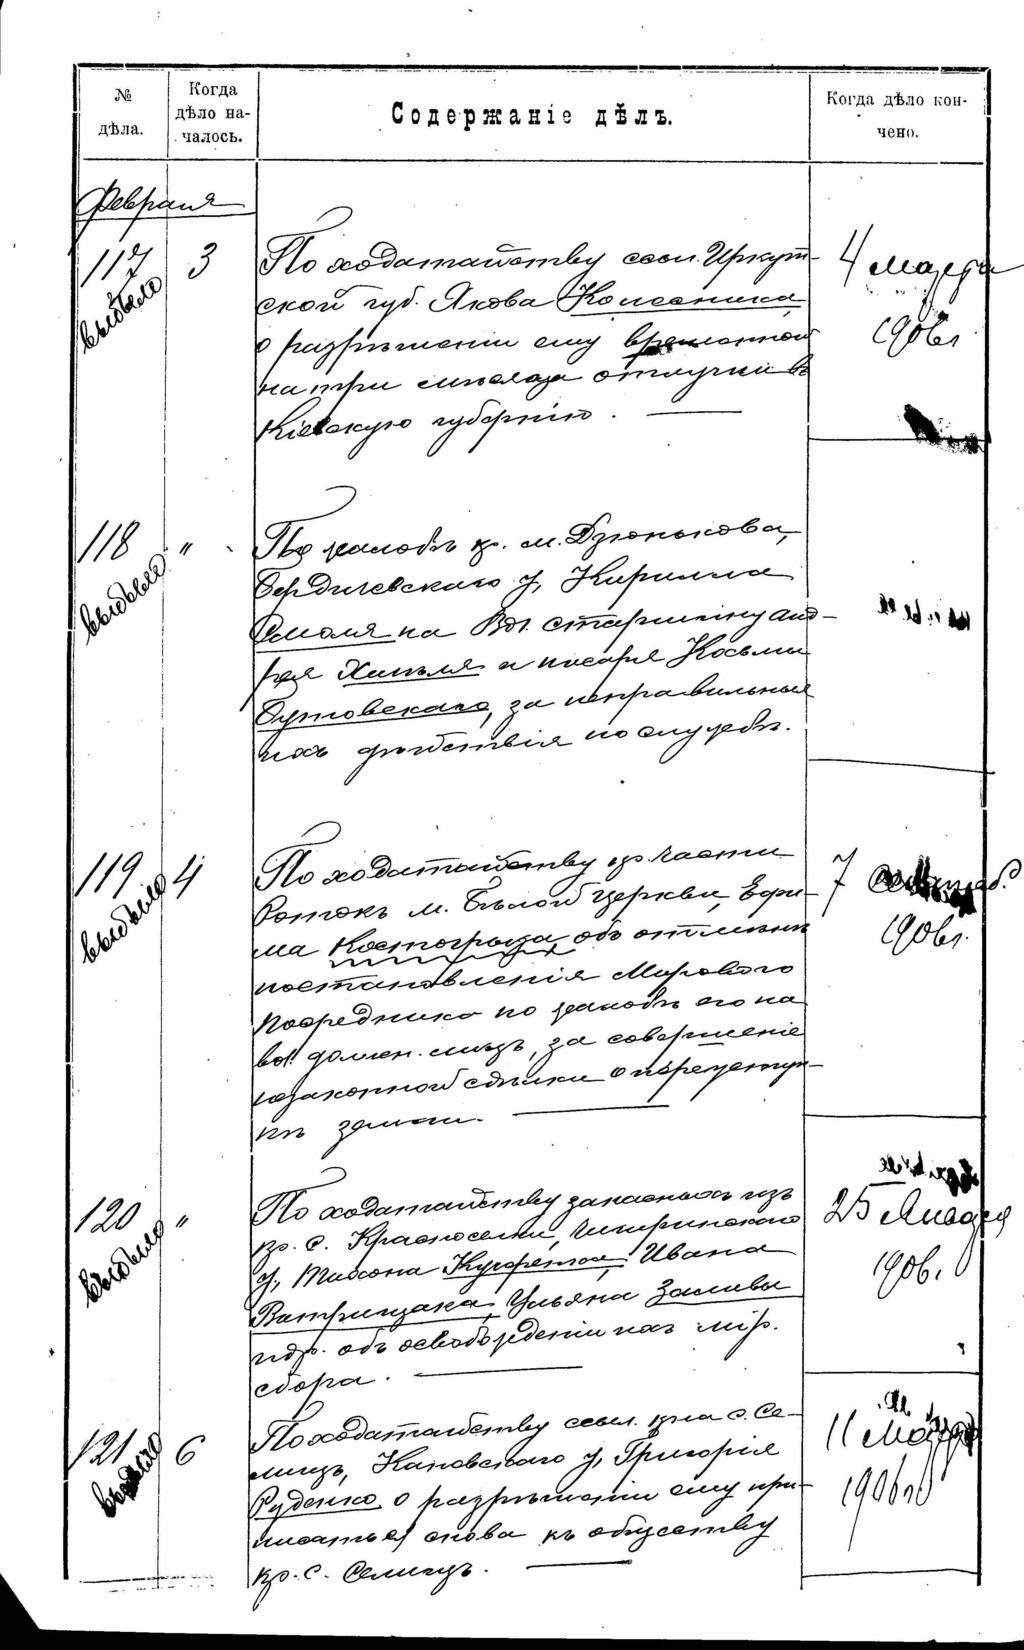 № дѣла.
Когда дѣло на-
чалось.
Содержаніе дѣлъ.
Когда дѣло кон-
чено.
Февраля
117
выбыло
3
По ходатайству ссыл. Иркут-
ской губ. Якова Колесника
о разрѣшеніи ему временной
на три мѣсяца отлучки въ
Кіевскую губернію.
4 марта
1906 г.
118
выбыло
"
По жалобѣ кр. м. Дзюнькова,
Бердичевскаго у, Кирилла
на Вол. старшину Анд-
рея и писаря Косьмы
Бутовскаго, за неправильныя
ихъ дѣйствія по службѣ.
119
выбыло
4
По ходатайству кр. части
Ротокъ м. Бѣлой церкви, Ефи-
ма Костогрыза, объ отмѣнѣ
постановленія Мирового
Посредника по жалобѣ его на
вол. должн. лицъ, за совершеніе
незаконной сдѣлки о переуступ-
кѣ земли.
7
1906 г.
120
выбыло
"
По ходатайству запасныхъ изъ
кр. с. Красноселки, Чигиринскаго
у, Ивана
Ульяна Заливы
и др. объ освобожденіи ихъ мір.
сбора.
25 Января
1906.
121
выбыло
6
По ходатайству ссыл. кр-на с. Се-
лищъ, Каневскаго у, Григорія
Руденко, о разрѣшеніи ему при-
писаться снова къ обществу
кр. с. Селищъ.
11 Марта
1906 г